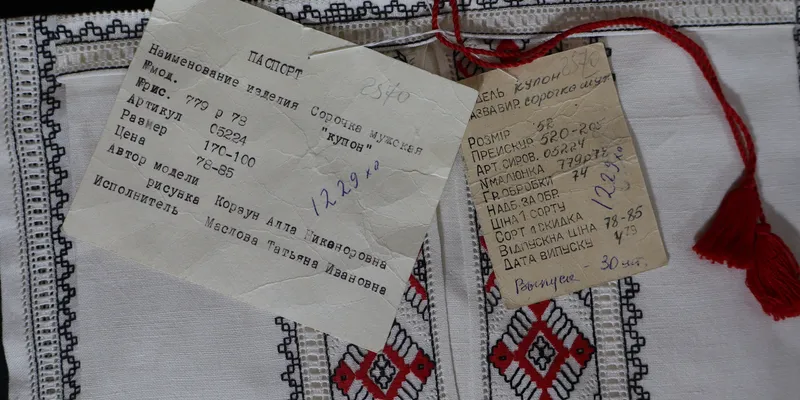 ПАСПОРТ
2570
Наименование изделия Сорочка мужская
"купон"
№мод.
№рис. 779 р 78
Артикул 05224
Размер 170-100
Цена 78-85
Автор модели
рисунка Коваун Алла Никаноровна
Исполнитель Маслова Татьяна Ивановна
1229 хо
2570
ДЕЛЬ КУПОН
АЗВА ВИР. СОРОЧКА МУЖ
РОЗМІР 52
ПРЕИСКУР 520-20
АРТ СИРОВ. 05224
NМАЛЮНКА 779р78
ГР. ОБРОБКИ 74
НАДБ. ЗА ОБР.
ЦІНА 1 СОРТУ
СОРТ СКИДКА
ВІДПУСКНА ЦІНА 78-85
ДАТА ВИПУСКУ 4 79
1229хо
Выпуск - 30 шт.